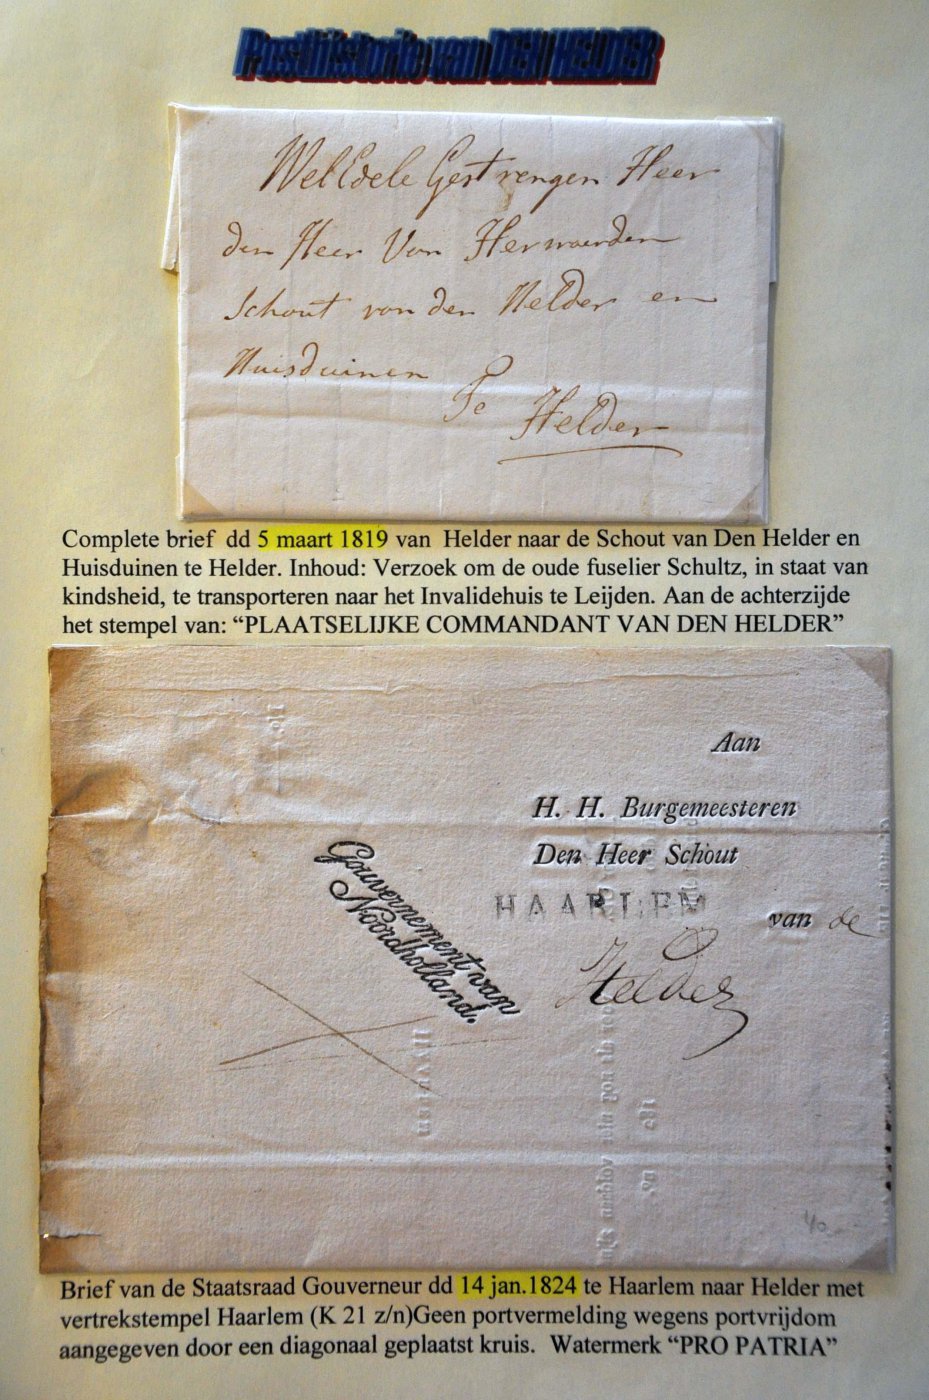 Posthistorie van DEN HELDER
WelEdele Gestrengen Heer
den Heer Van Herwaerden
Schout van den Helder en
Huisduinen
Te Helder
Complete brief dd 5 maart 1819 van Helder naar de Schout van Den Helder en
Huisduinen te Helder. Inhoud: Verzoek om de oude fuselier Schultz, in staat van
kindsheid, te transporteren naar het Invalidehuis te Leijden. Aan de achterzijde
het stempel van: “PLAATSELIJKE COMMANDANT VAN DEN HELDER”
Aan
H. H. Burgemeesteren
Den Heer Schout
HAARLEM
van de
Helder
Gouvernement van
Noordholland.
40
Brief van de Staatsraad Gouverneur dd 14 jan.1824 te Haarlem naar Helder met
vertrekstempel Haarlem (K 21 z/n)Geen portvermelding wegens portvrijdom
aangegeven door een diagonaal geplaatst kruis. Watermerk “PRO PATRIA”